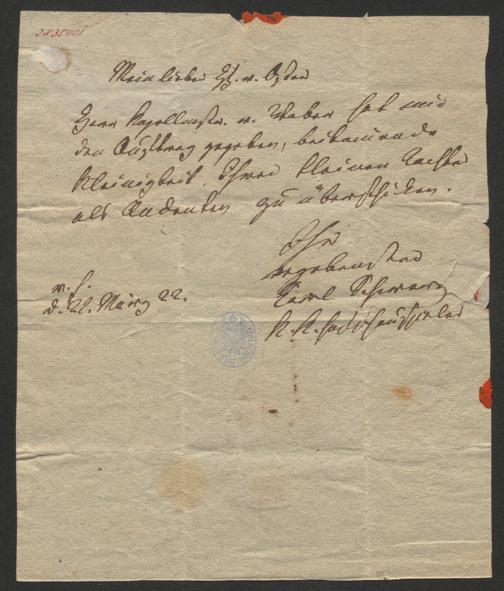 Mein lieber H. v.
Herr Kapellmstr. v. Weber hat mir
den Auftrag gegeben, beikomende
Kleinigkeit, Ihrer kleinen Tochter
als Andenken zu überschicken.
Ihr
ergebenster
Carl Schwarz
k. k. Hofschauspieler
v. H.
d. 21. März 22.